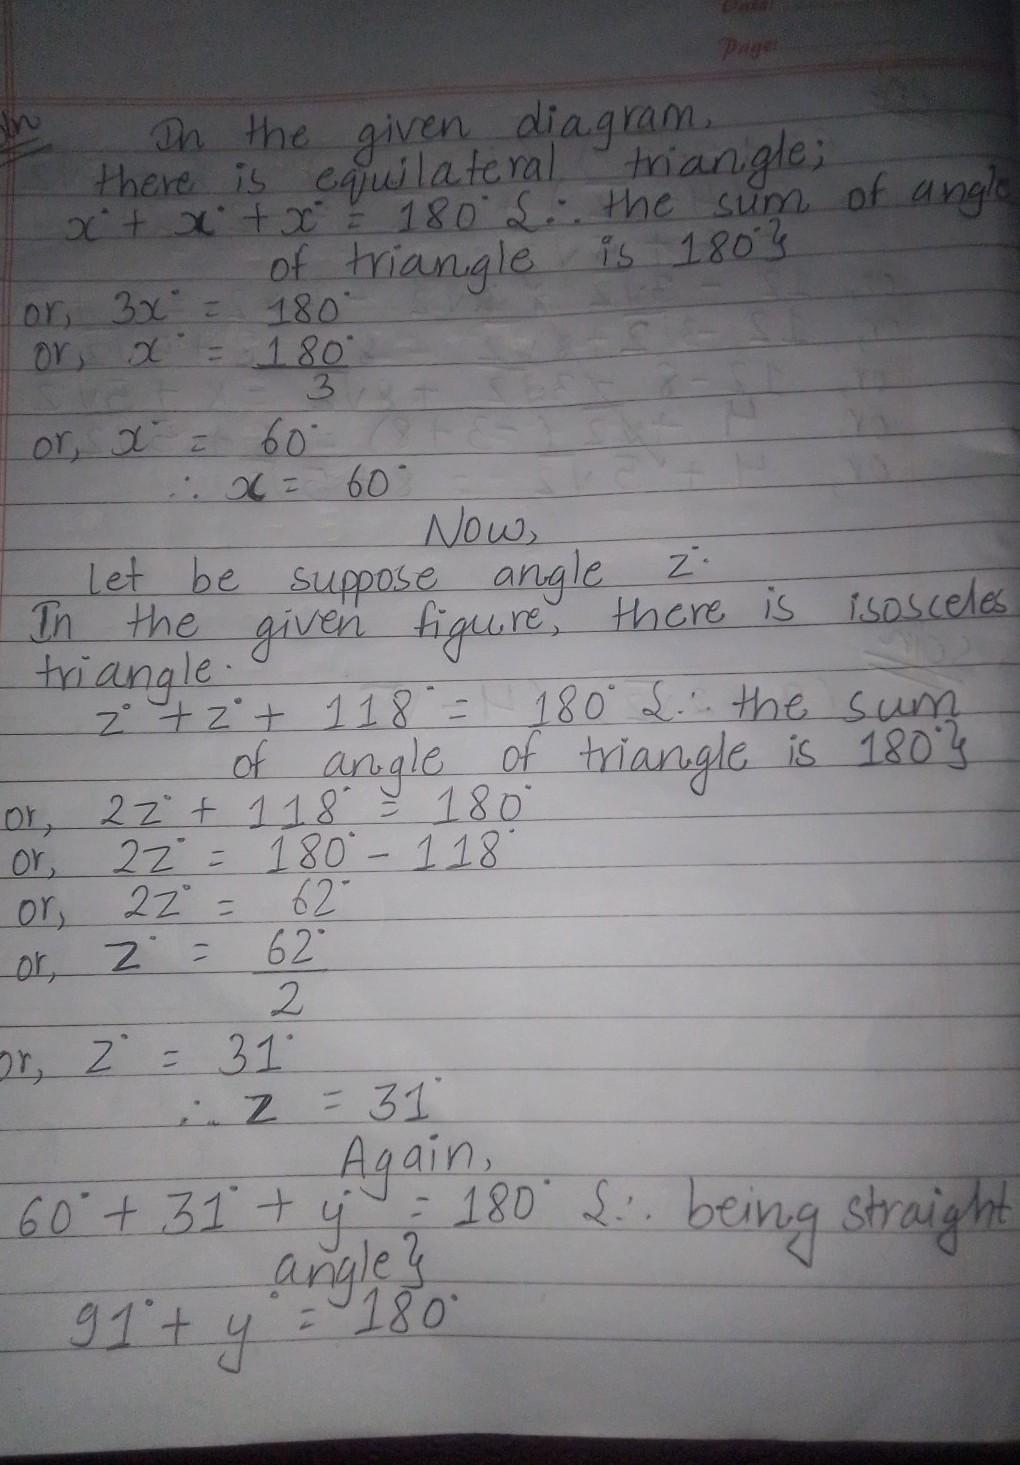 Date:
Page:
In the given diagram,
there is equilateral triangle;
x° + x° + x° = 180° {∴ the sum of angle
of triangle is 180°}
or, 3x° = 180°
or, x° = 180°
3
or, x° = 60°
∴ x = 60°
Now,
Let be suppose angle z°.
In the given figure, there is isosceles
triangle.
z° + z° + 118° = 180° {∴ the sum
of angle of triangle is 180°}
or, 2z° + 118° = 180°
or, 2z° = 180° - 118°
or, 2z° = 62°
or, z° = 62°
2
or, z° = 31°
∴ z = 31°
Again,
60° + 31° + y° = 180° {∴ being straight
angle}
91° + y° = 180°